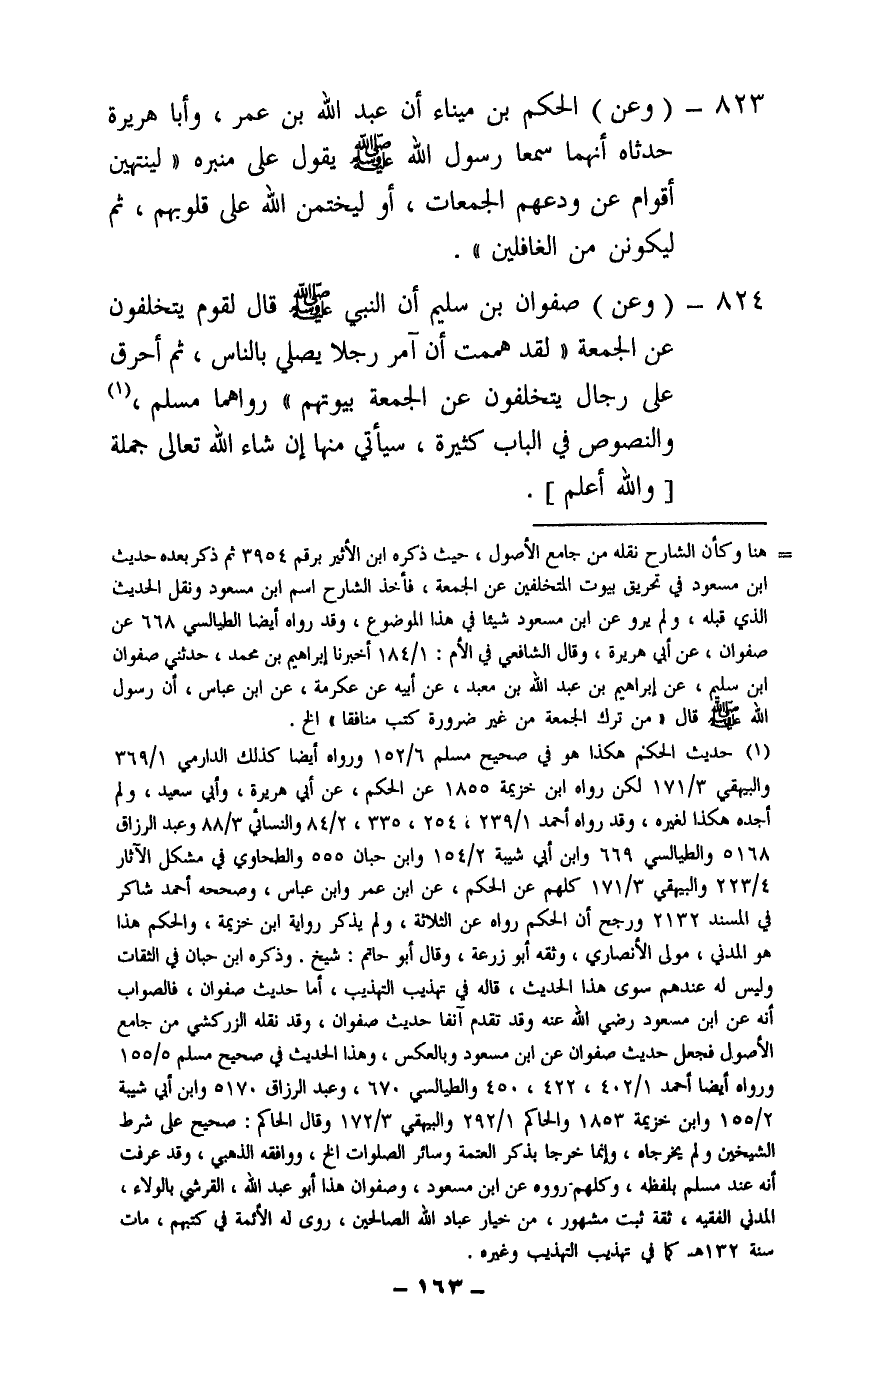 ٨٢٣ – ( وعن ) الحكم بن ميناء أن عبد الله بن عمر ، وأبا هريرة
حدثاه أنهما سمعا رسول الله ﷺ يقول على منبره « لينتهين
أقوام عن ودعهم الجمعات ، أو ليختمن الله على قلوبهم ، ثم
ليكونن من الغافلين » .
٨٢٤ – ( وعن ) صفوان بن سليم أن النبي ﷺ قال لقوم يتخلفون
عن الجمعة « لقد هممت أن آمر رجلا يصلي بالناس ، ثم أحرق
على رجال يتخلفون عن الجمعة بيوتهم » رواهما مسلم ،(١)
والنصوص في الباب كثيرة ، سيأتي منها إن شاء الله تعالى جملة
[ والله أعلم ] .
= هنا وكأن الشارح نقله من جامع الأصول ، حيث ذكره ابن الأثير برقم ٣٩٥٤ ثم ذكر بعده حديث
ابن مسعود في تحريق بيوت المتخلفين عن الجمعة ، فأخذ الشارح اسم ابن مسعود ونقل الحديث
الذي قبله ، ولم يرو عن ابن مسعود شيئا في هذا الموضوع ، وقد رواه أيضا الطيالسي ٦٦٨ عن
صفوان ، عن أبي هريرة ، وقال الشافعي في الأم : ١٨٤/١ أخبرنا إبراهيم بن محمد ، حدثني صفوان
ابن سليم ، عن إبراهيم بن عبد الله بن معبد ، عن أبيه عن عكرمة ، عن ابن عباس ، أن رسول
الله ﷺ قال « من ترك الجمعة من غير ضرورة كتب منافقا » الخ .
(١) حديث الحكم هكذا هو في صحيح مسلم ١٥٢/٦ ورواه أيضا كذلك الدارمي ٣٦٩/١
والبيهقي ١٧١/٣ لكن رواه ابن خزيمة ١٨٥٥ عن الحكم ، عن أبي هريرة ، وأبي سعيد ، ولم
أجده هكذا لغيره ، وقد رواه أحمد ٢٣٩/١ ، ٢٥٤ ، ٣٣٥ ، ٨٤/٢ والنسائي ٨٨/٣ وعبد الرزاق
٥١٦٨ والطيالسي ٦٦٩ وابن أبي شيبة ١٥٤/٢ وابن حبان ٥٥٥ والطحاوي في مشكل الآثار
٢٢٣/٤ والبيهقي ١٧١/٣ كلهم عن الحكم ، عن ابن عمر وابن عباس ، وصححه أحمد شاكر
في المسند ٢١٣٢ ورجح أن الحكم رواه عن الثلاثة ، ولم يذكر رواية ابن خزيمة ، والحكم هذا
هو المدني ، مولى الأنصاري ، وثقه أبو زرعة ، وقال أبو حاتم : شيخ . وذكره ابن حبان في الثقات
وليس له عندهم سوى هذا الحديث ، قاله في تهذيب التهذيب ، أما حديث صفوان ، فالصواب
أنه عن ابن مسعود رضي الله عنه وقد تقدم آنفا حديث صفوان ، وقد نقله الزركشي من جامع
الأصول فجعل حديث صفوان عن ابن مسعود وبالعكس ، وهذا الحديث في صحيح مسلم ١٥٥/٥
ورواه أيضا أحمد ٤٠٢/١ ، ٤٢٢ ، ٤٥٠ والطيالسي ٦٧٠ ، وعبد الرزاق ٥١٧٠ وابن أبي شيبة
١٥٥/٢ وابن خزيمة ١٨٥٣ والحاكم ٢٩٢/١ والبيهقي ١٧٢/٣ وقال الحاكم : صحيح على شرط
الشيخين ولم يخرجاه ، وإنما خرجا بذكر العتمة وسائر الصلوات الخ ، ووافقه الذهبي ، وقد عرفت
أنه عند مسلم بلفظه ، وكلهم رووه عن ابن مسعود ، وصفوان هذا أبو عبد الله ، القرشي بالولاء ،
المدني الفقيه ، ثقة ثبت مشهور ، من خيار عباد الله الصالحين ، روى له الأئمة في كتبهم ، مات
سنة ١٣٢هـ كما في تهذيب التهذيب وغيره .
– ١٦٣ –